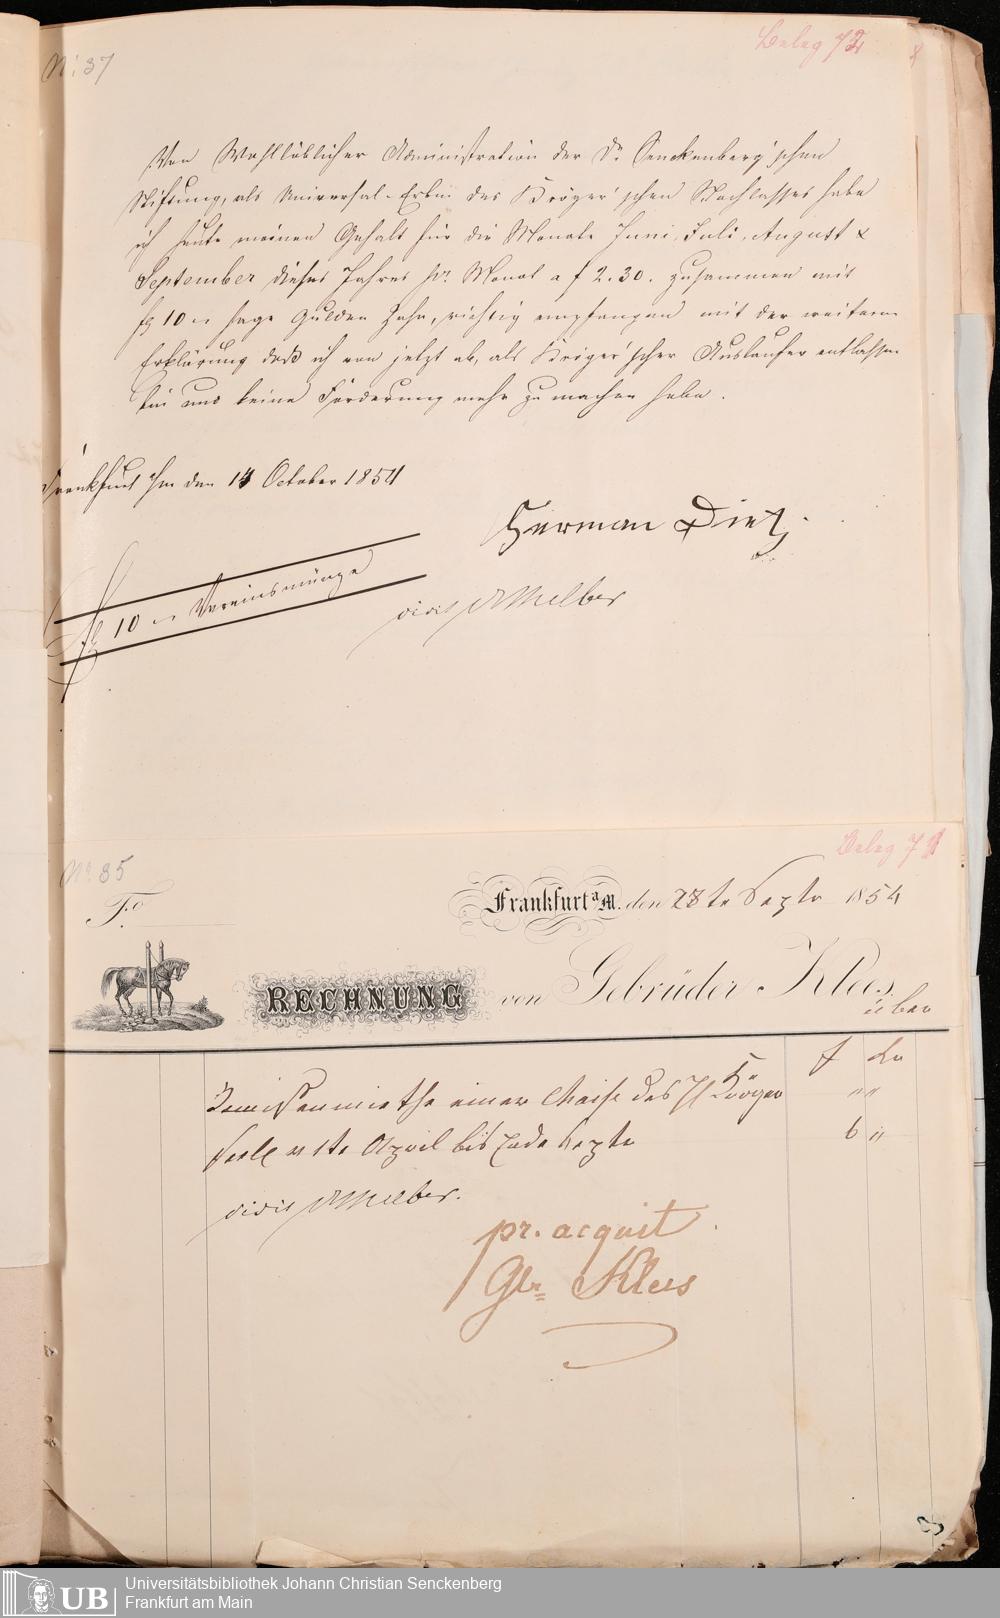 N: 37
Beleg 72
Von Wohllöblicher Administration der Dr. Senckenberg'schen
Stiftung, als Universal-Erbin des Kröger'schen Nachlasses habe
ich heute meinen Gehalt für die Monate Juni, Juli, August &
September dieses Jahres pr. Monat a f 2.30. zusammen mit
fl 10 „ sage Gulden Zehn, richtig empfangen mit der weiteren
Erklärung daß ich von jetzt ab, als Kröger'scher Auslaufer entlassen
bin und keine Forderung mehr zu machen habe.
Frankfurt a/m den 14 October 1854
Herman Dietz.
fl 10 „ Vereinsmünze
vidit Melber
No. 35
Beleg 71
F.o
Frankfurt a/M. den 28te Septr 1854
RECHNUNG von Gebrüder Klees
über
f Kr
Remisenmiethe einer Chaise des H Kröger „ „
seel v 1te April bis Ende Septr 6 „
vidit Melber.
pr. acquit
Gbr= Klees
UB
Universitätsbibliothek Johann Christian Senckenberg
Frankfurt am Main